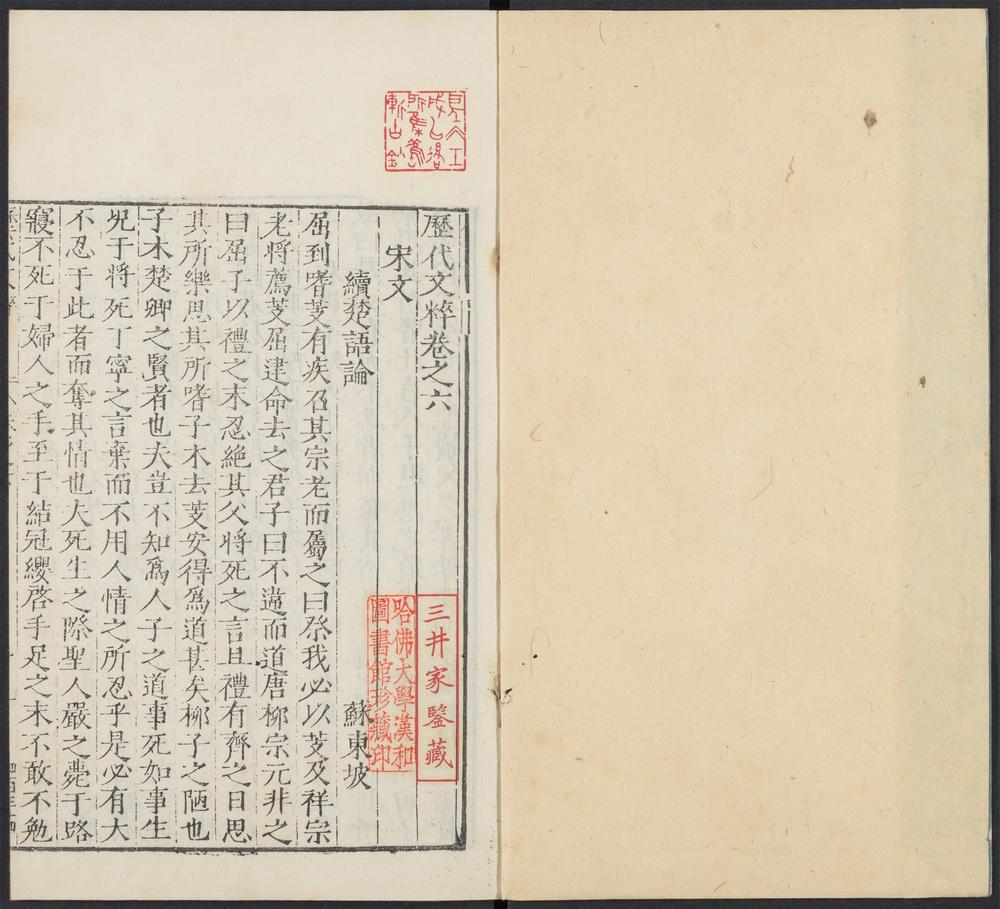 歷代文粹卷之六
宋文
續楚語論
蘇東坡
屈到嗜芰有疾召其宗老而屬之曰祭我必以芰及祥宗
老將薦芰屈建命去之君子曰不違而道唐柳宗元非之
曰屈子以禮之末忍絕其父將死之言且禮有齊之日思
其所樂思其所嗜子木去芰安得爲道甚矣柳子之陋也
子木楚卿之賢者也夫豈不知爲人子之道事死如事生
况于將死丁寧之言棄而不用人情之所忍乎是必有大
不忍于此者而奪其情也夫死生之際聖人嚴之薨于路
寢不死于婦人之手至于結冠纓啓手足之末不敢不勉
三井家鑒藏
哈佛大學漢和
圖書館珍藏印